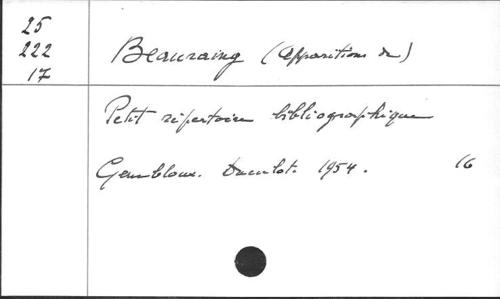 25
222
17
Beauraing (Apparitions de)
Petit répertoire bibliographique
Gembloux. Duculot. 1954. 16